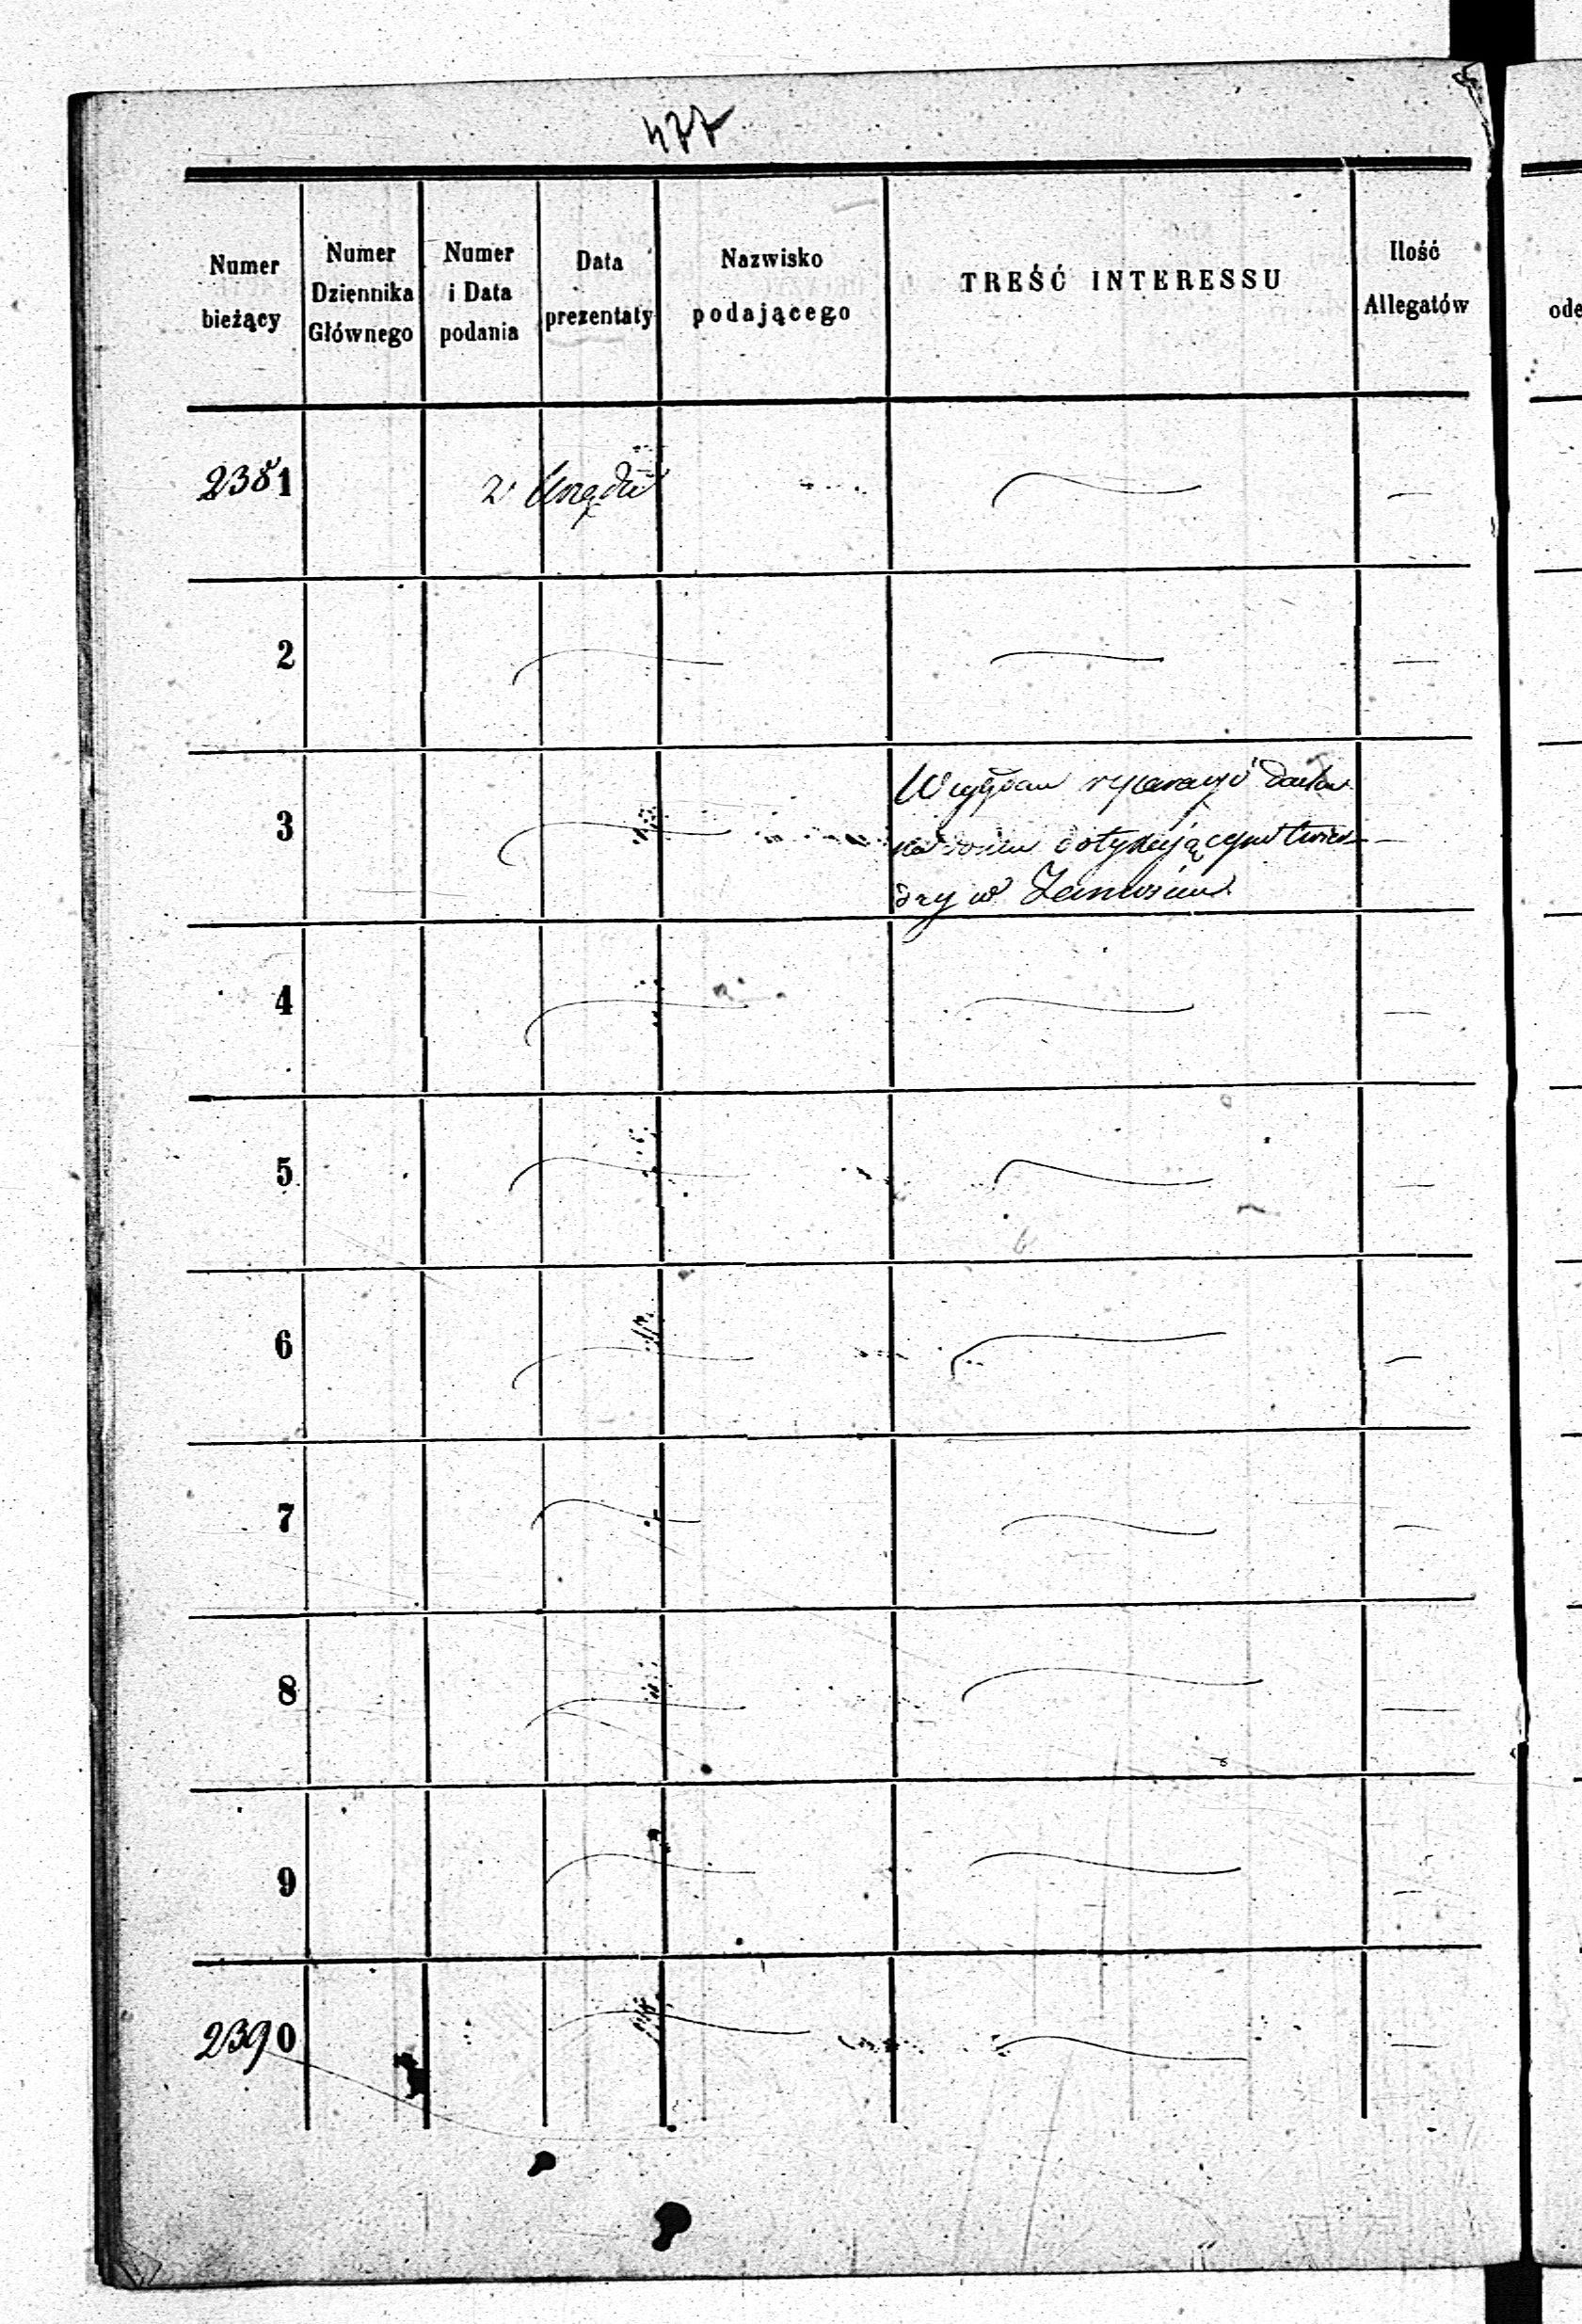 477
Numer bieżący
Numer Dziennika Głównego
Numer i Data podania
Data prezentaty
Nazwisko podającego
TREŚĆ INTERESSU
Ilość Allegatów
ode
2381 z Urzędu
2
3
W względzie reperacyi
dotykającym twier-
dzy w Zamościu
4
5
6
7
8
9
2390